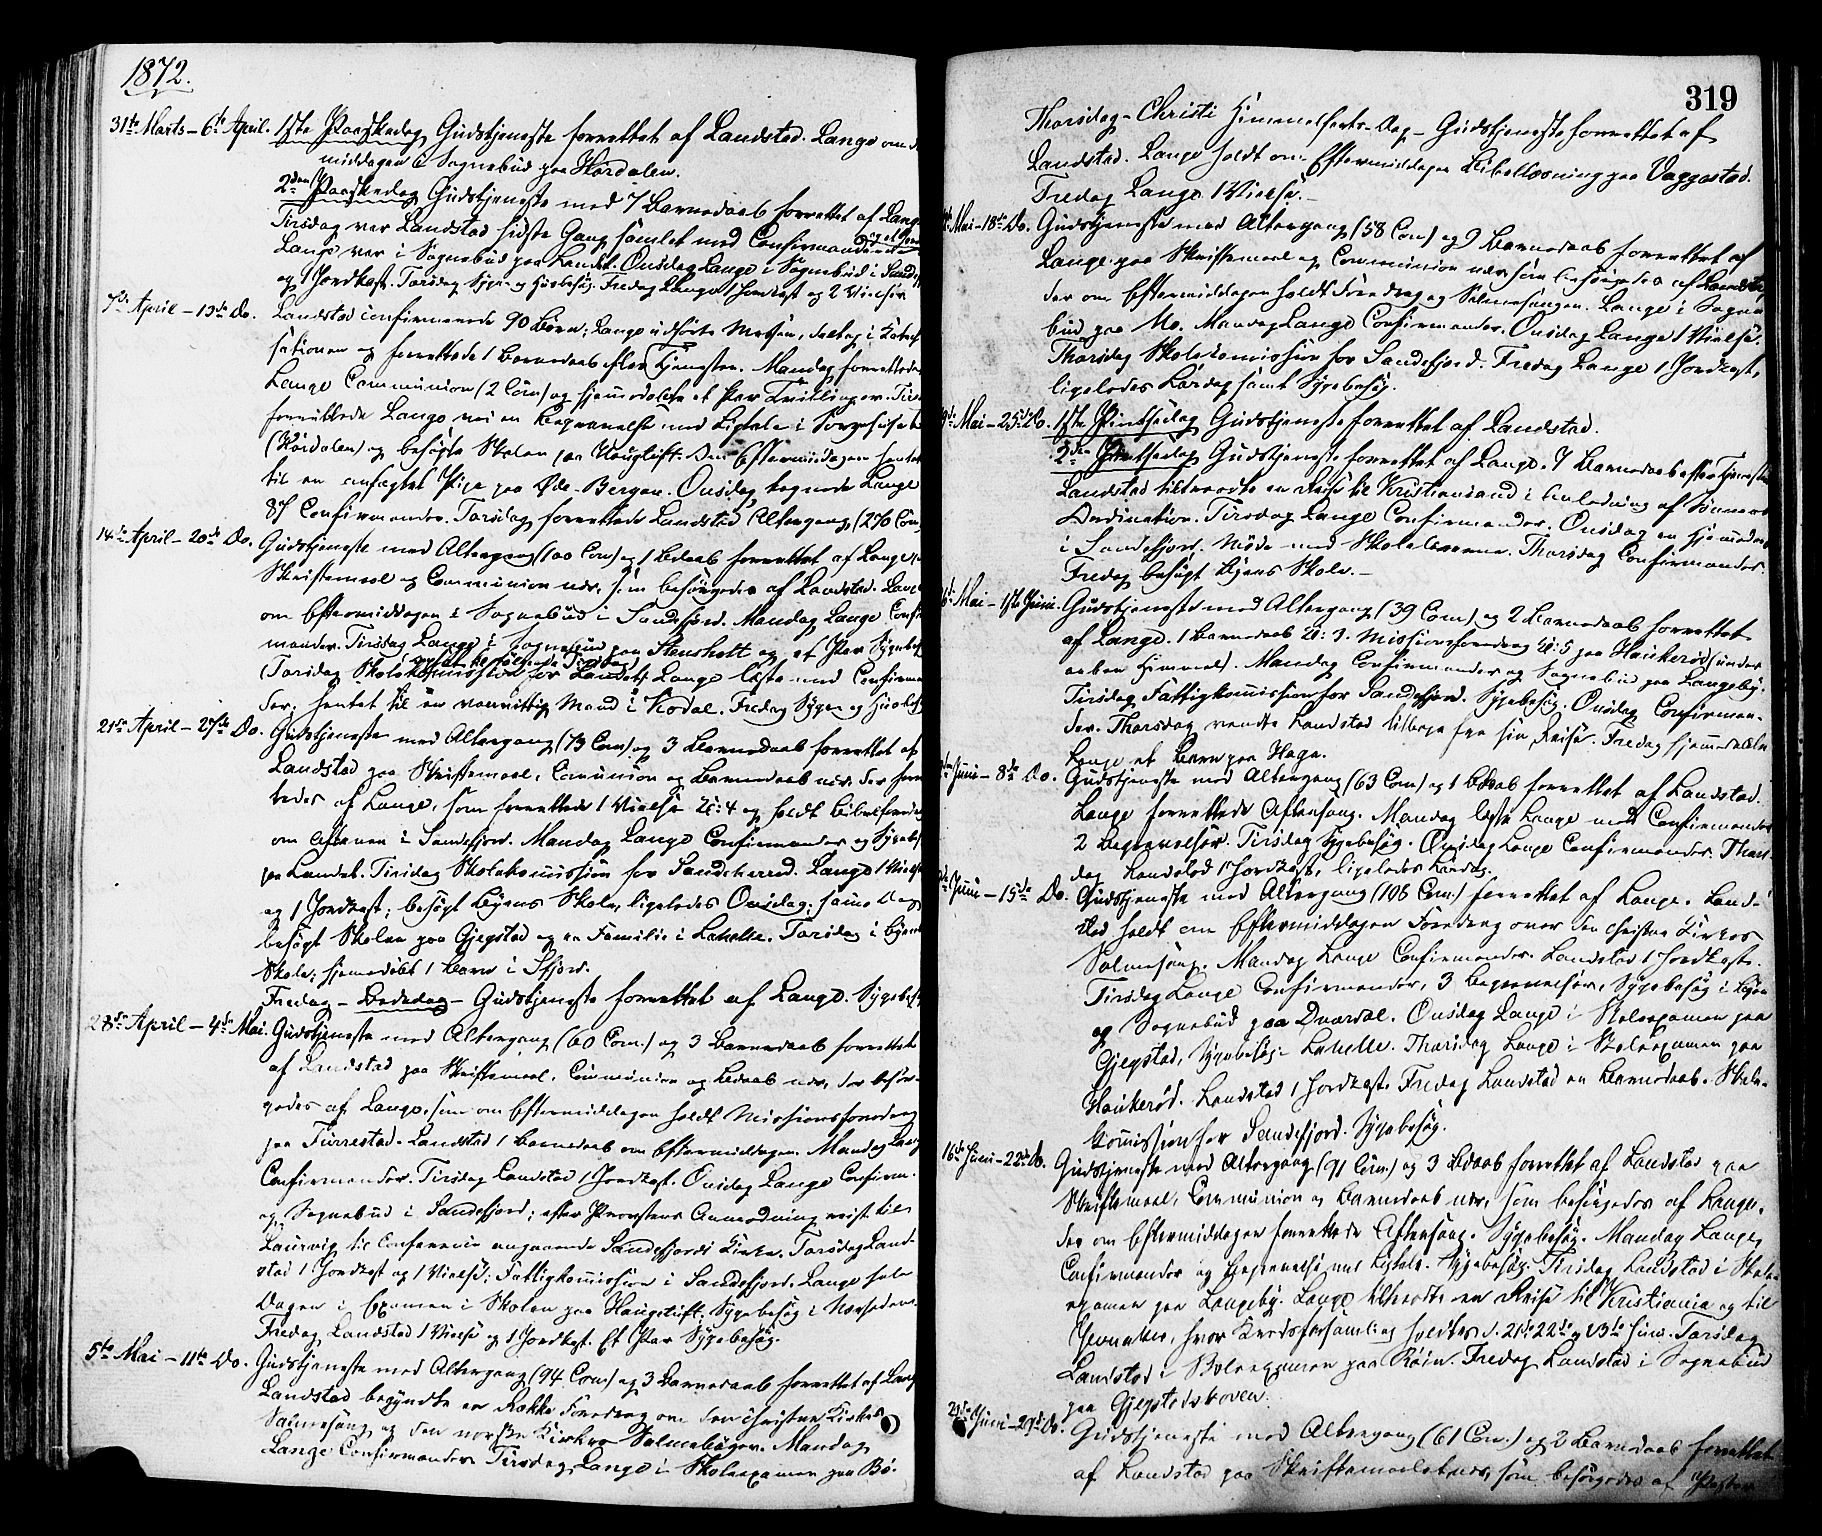 1872.
31te Marts – 6te April. 1ste Paaskedag Gudstjeneste forrettet af Landstad. Lange om
middagen i Sognebud paa Hørdalen.
2den Paaskedag Gudstjeneste med 7 Barnedaab forrettet af Lange
Tirsdag var Landstad sidste Gang samlet med Confirmanderne
Lange var i Sognebud paa Landet. Onsdag Lange i Sognebud i
og 1 Jordkast. Torsdag Syge- og Huusbesøg. Fredag Lange 1 Jordkast og 2 Vielser
7de April – 13de Do. Landstad confirmerede 90 Børn; Lange udførte Messen, deltog i Katech
sationen og forrettede 1 Barnedaab efter Tjenesten. Mandag forrettede
Lange Communion (2 Com) og hjemmedøbte et Par Tvillinger. Tirs
forrettede Lange ved en Begravelse med Ligtale i Sørgehuset
(Hørdalen) og besøgte Skolen paa Haugtuft. Om Eftermiddagen hentet
til en anfægtet Pige paa Øde-Bergan. Onsdag tegnede Lange
87 Confirmander. Torsdag forrettede Landstad Altergang (270 Com.
14de April – 20de Do. Gudstjeneste med Altergang (100 Com) og 1 Bdaab forrettet af Lange
Skriftemaal og Communion nær, som besørgedes af Landstad. Lange
om Eftermiddagen i Sognebud i Sandefjord. Mandag Lange Confir
mander. Tirsdag Lange i Sognebud paa Stensholt og et Par Sygebes
Torsdag Skolekommission for Landet; Lange læste med Confirman
der; hentet til en vanvittig Mand i Kodal. Fredag Syge- og Huusbes
21de April – 27de Do. Gudstjeneste med Altergang (73 Com) og 3 Barnedaab forrettet af
Landstad paa Skriftemaal, Communion og Barnedaab nær, der forret
tedes af Lange, som forrettede 1 Vielse Kl: 4 og holdt Bibelforedrag
om Aftenen i Sandefjord. Mandag Lange Confirmander og Sygebes
paa Landet. Tirsdag Skolekommission for Sandeherred. Lange 1 Vielse
og 1 Jordkast; besøgt Byens Skole, ligeledes Onsdag; samme Dag
besøgt Skolen paa Gjegstad og en Familie i Lahelle. Torsdag i Byens
Skole; hjemmedøbt 1 Barn i Sfjord.
Fredag – Bededag – Gudstjeneste forrettet af Lange. Sygebes
28de April – 4de Mai. Gudstjeneste med Altergang (60 Com.) og 3 Barnedaab forrettet
af Landstad paa Skriftemaal, Communion og Bdaab nær, der besør-
gedes af Lange, som om Eftermiddagen holdt Missionsforedrag
paa Furrestad. Landstad 1 Barnedaab om Eftermiddagen. Mandag Lang
Confirmander. Tirsdag Landstad 1 Jordkast. Onsdag Lange Confirm.
og Sognebud i Sandefjord; efter Provstens Anmodning reist til
Laurvig til Conference angaaende Sandefjords Kirke. Torsdag Land-
stad 1 Jordkast og 1 Vielse; Fattigkommission i Sandefjord. Lange hele
Dagen i Examen i Skolen paa Haugtuft; Sygebesøg i
Fredag Landstad 1 Vielse og 1 Jordkast. Et Par Sygebesøg.
5te Mai – 11te Do. Gudstjeneste med Altergang (94 Com) og 3 Barnedaab forrettet af Lang
Landstad begyndte en Række Foredrag om den christne Kirkes
Salmesang og den norske Kirkes Salmebøger. Mandag
Lange Confirmander. Tirsdag Lange i Skoleexamen paa Bø.
319
Thorsdag – Christi Himmelfarts-Dag – Gudstjeneste forrettet af
Landstad. Lange holdt om Eftermiddagen Bibellæsning paa Vaggestad.
Fredag Lange 1 Vielse. –
Mai – 18de Do. Gudstjeneste med Altergang (58 Com) og 9 Barnedaab forrettet af
Lange paa Skriftemaal og Communion nær, som besørgedes af Landstad,
der om Eftermiddagen holdt Foredrag og Salmesangen. Lange i Sogne
bud paa Mo. Mandag Lange Confirmander. Onsdag Lange 1 Vielse.
Thorsdag Skolekomission for Sandefjord. Fredag Lange 1 Jordkast,
ligeledes Lørdag samt Sygebesøg.
Mai – 25de Do. 1ste Pintsedag Gudstjeneste forrettet af Landstad.
2den Pintsedag Gudstjeneste forrettet af Lange. 7 Barnedaab efter Tjenesten
Landstad tiltraadte en Reise til Kristiansand i Anledning af Sønnens
Ordination. Tirsdag Lange Confirmander. Onsdag en Hjemmedaab
i Sandefjord. Møde med Skolelærerne. Thorsdag Confirmander.
Fredag besøgt Byens Skole. –
Mai – 1ste Juni. Gudstjeneste med Altergang (39 Com) og 2 Barnedaab forrettet
af Lange. 1 Barnedaab Kl: 3. Missionsforedrag Kl: 5 paa Haukerød (under
aaben Himmel). Mandag Confirmander og Sognebud paa Langeby.
Tirsdag Fattigkommission for Sandefjord. Sygebesøg. Onsdag Confirman-
der. Thorsdag vendte Landstad tilbage fra sin Reise. Fredag hjemmedøbte
Lange et Barn paa Haga.
Juni – 8de Do. Gudstjeneste med Altergang (63 Com) og 1 Bdaab forrettet af Landstad.
Lange forrettede Aftensang. Mandag læste Lange med Confirmander
2 Begravelser. Tirsdag Sygebesøg. Onsdag Lange Confirmander. Thors-
dag Landstad 1 Jordkast, ligeledes Lørdag.
Juni – 15de Do. Gudstjeneste med Altergang (108 Com) forrettet af Lange. Land-
stad holdt om Eftermiddagen Foredrag over den christne Kirkes
Salmesang. Mandag Lange Confirmander. Landstad 1 Jordkast.
Tirsdag Lange Confirmander, 3 Begravelser, Sygebesøg i Byen
og Sognebud paa Dverdal. Onsdag Lange i Skoleexamen paa
Gjegstad, Sygebesøg i Lahelle. Thorsdag Lange i Skoleexamen paa
Haukerød. Landstad 1 Jordkast. Fredag Landstad en Barnedaab. Skole-
kommission for Sandefjord. Sygebesøg.
16de Juni – 22de Do. Gudstjeneste med Altergang (91 Com) og 3 Bdaab forrettet af Landstad paa
Skriftemaal, Communion og Barnedaab nær, som besørgedes af Lange,
der om Eftermiddagen forrettede Aftensang. Sygebesøg. Mandag Lange
Confirmander og Begravelse med Ligtale. Sygebesøg. Tirsdag Landstad i Skole-
examen paa Langeby. Lange tiltraadte en Reise til Kristiania og til
Jevnaker, hvor Kredsforsamling holdtes d. 21de 22de og 23de Juni. Torsdag
Landstad i Skoleexamen paa Røin. Fredag Landstad i Sognebud
paa Gjegstadskoven.
23de Juni – 29de Do. Gudstjeneste med Altergang (61 Com.) og 2 Barnedaab forrettet
af Landstad paa Skriftemaalet nær, som besørgedes af Pastor